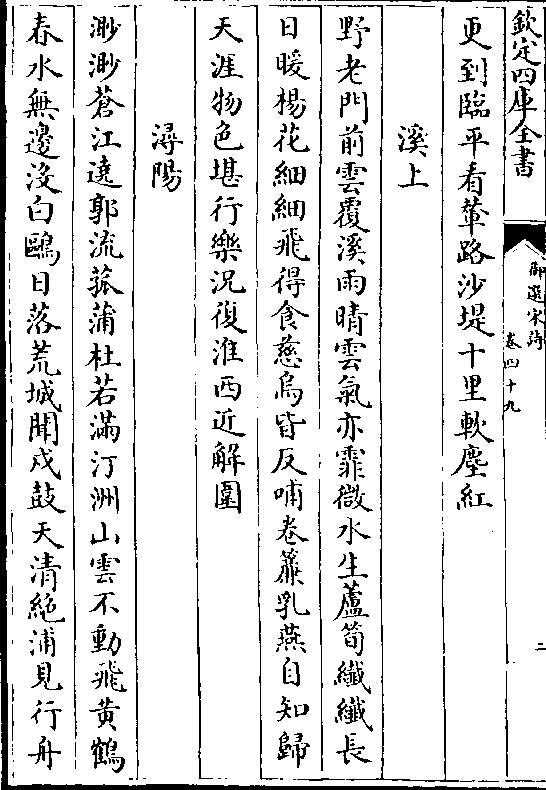 欽定四庫全書
御選宋詩
卷四十九
二
更到臨平看輦路沙堤十里軟塵紅
溪上
野老門前雲覆溪雨晴雲氣亦霏微水生蘆筍纖纖長
日暖楊花細細飛得食慈烏皆反哺卷簾乳燕自知歸
天涯物色堪行樂況復淮西近解圍
潯陽
渺渺蒼江遶郭流菰蒲杜若滿汀洲山雲不動飛黃鶴
春水無邊沒白鷗日落荒城聞戍鼓天清絶浦見行舟